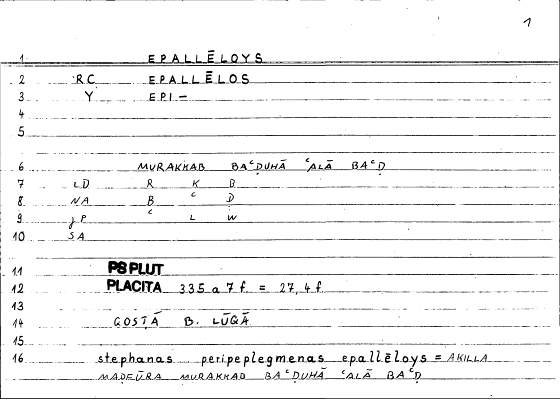 1
1 EPALLĒLOYS
2 RC EPALLĒLOS
3 Y EPI-
4
5
6 MURAKKAB BAʿḌUHĀ ʿALĀ BAʿḌ
7 LD R K B
8 NA B ʿ Ḍ
9 gP ʿ L W
10 SA
11 PS PLUT
12 PLACITA 335 a 7 f. = 27, 4 f
13
14 QOSṬĀ B. LŪQĀ
15
16 stephanas peripeplegmenas epallēloys = AKILLA
MAḌFŪRA MURAKKAB BAʿḌUHĀ ʿALĀ BAʿḌ